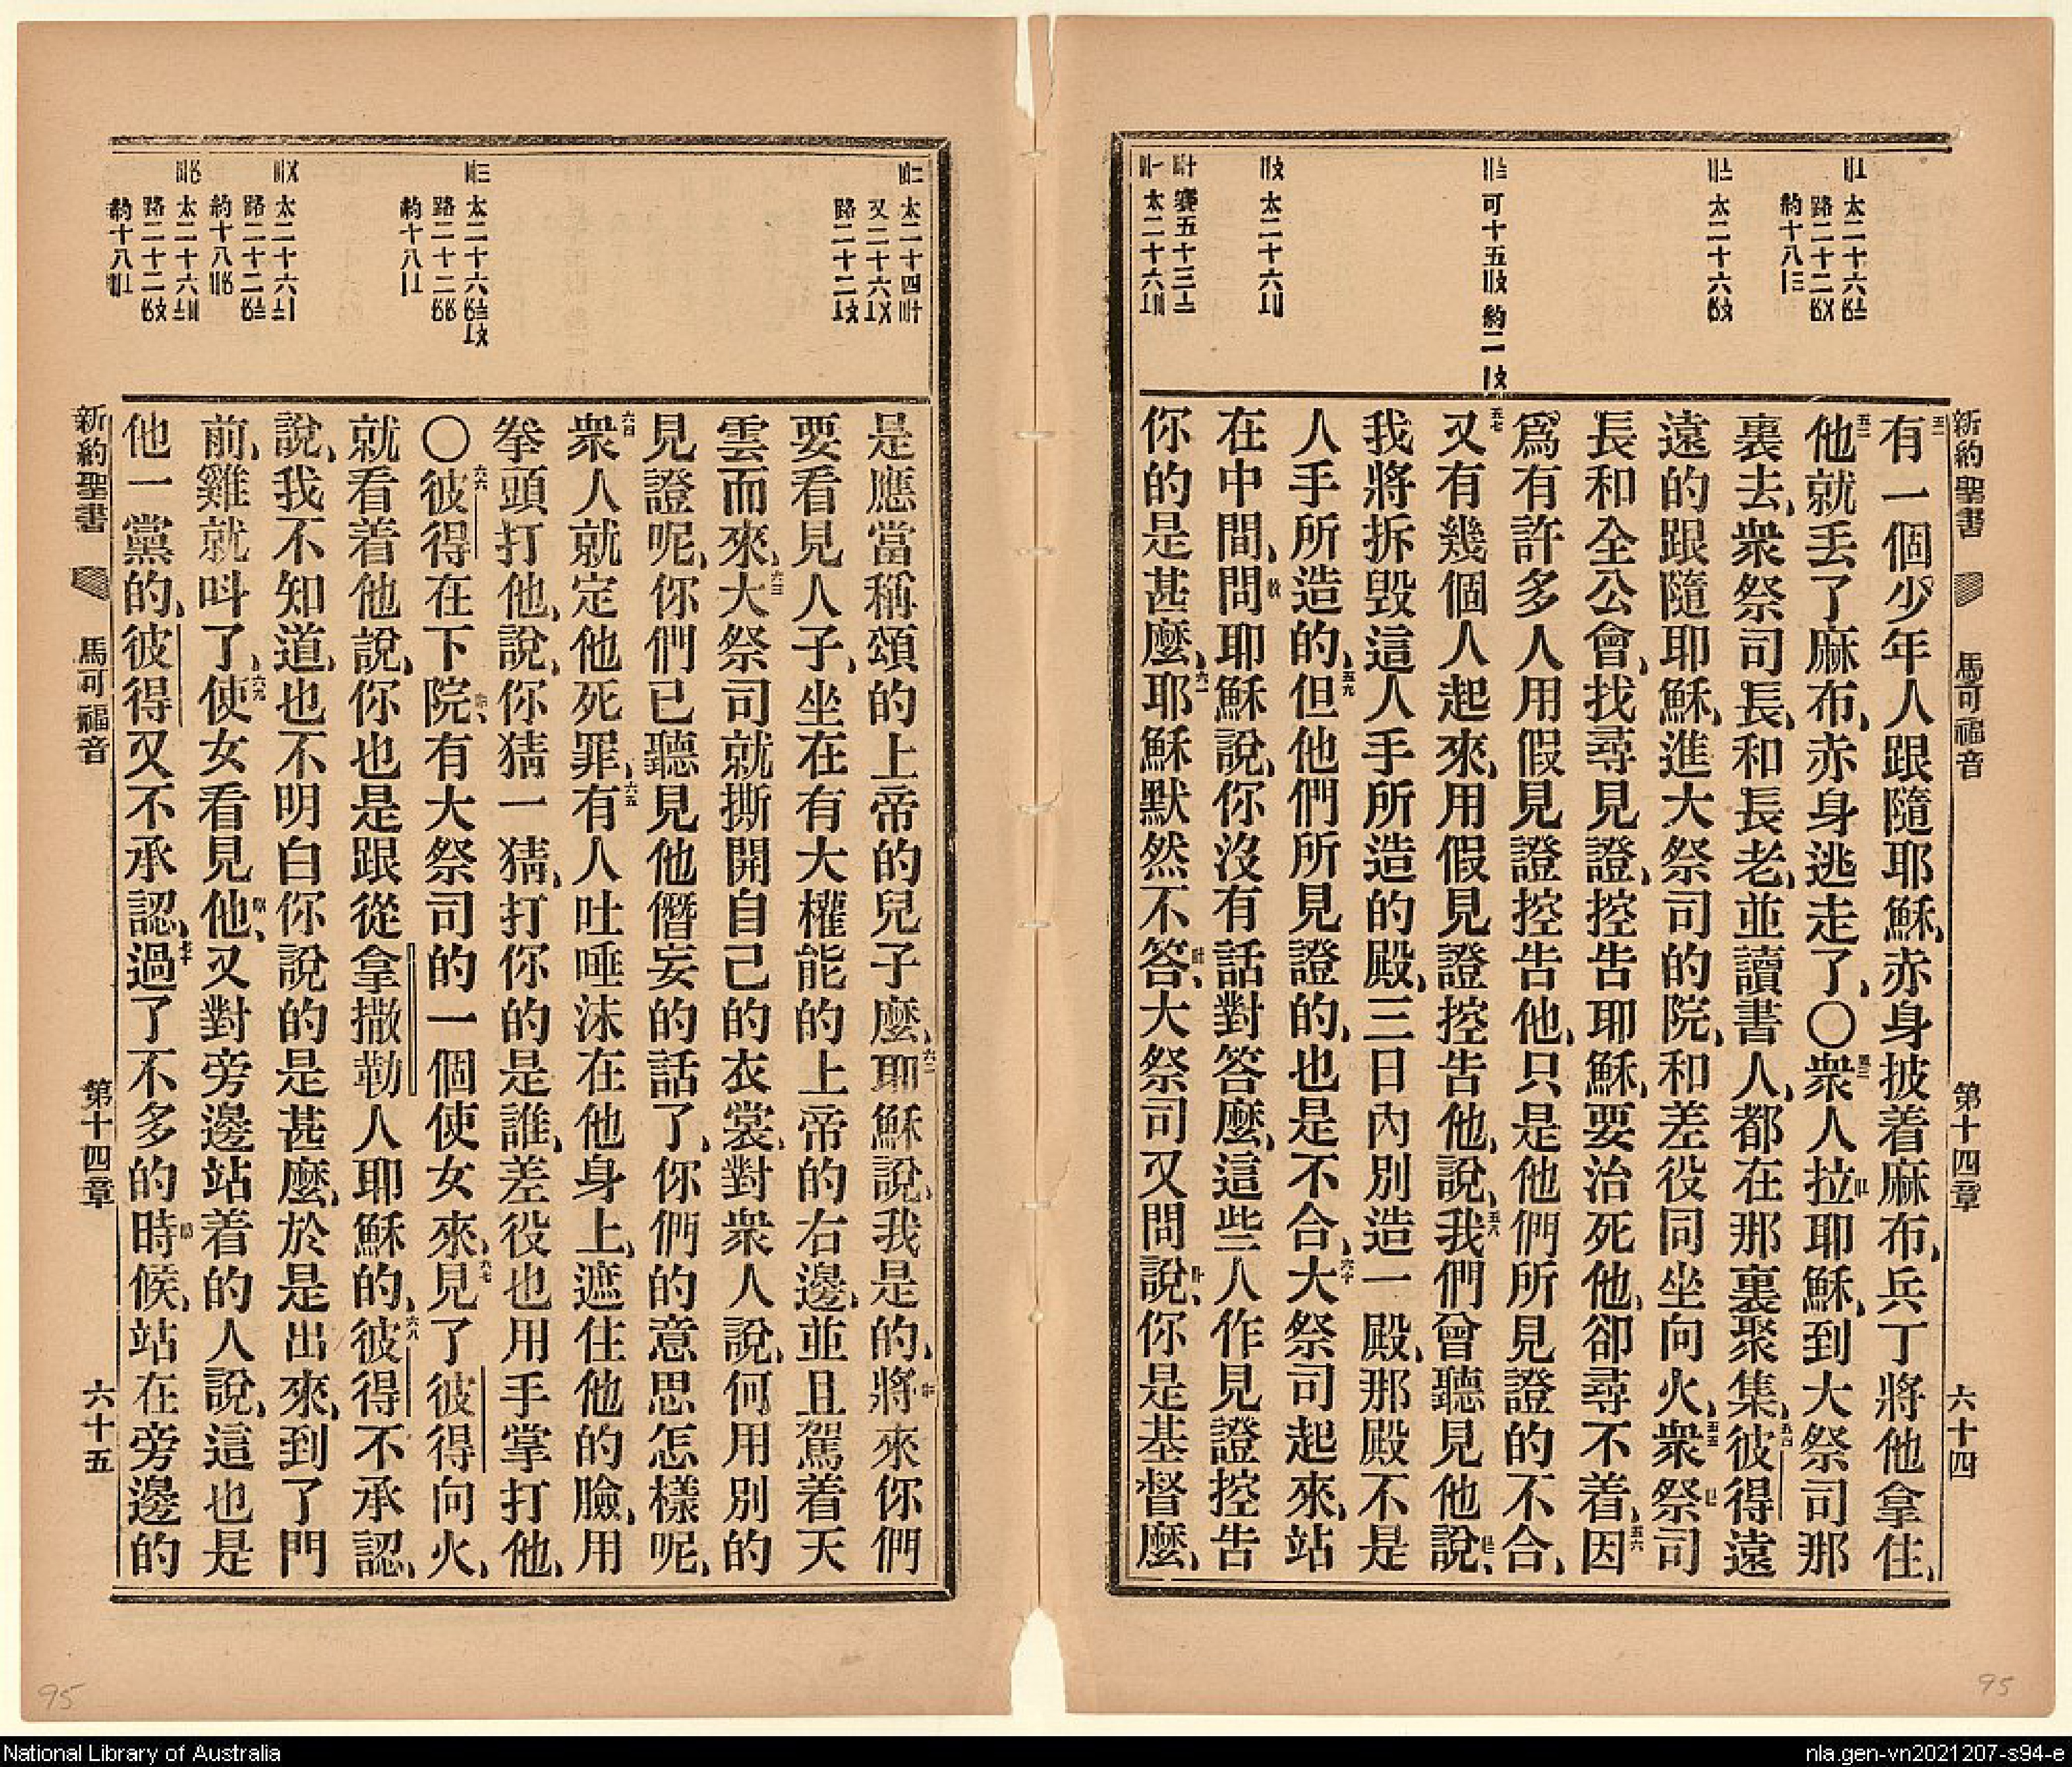 新約聖書 馬可福音 第十四章 六十四
有一個少年人跟隨耶穌、赤身披着麻布、兵丁將他拿住、
他就丟了麻布、赤身逃走了、〇衆人拉耶穌、到大祭司那
裏去、衆祭司長、和長老、並讀書人、都在那裏聚集、彼得遠
遠的跟隨耶穌、進大祭司的院、和差役同坐向火、衆祭司
長和全公會、找尋見證、控告耶穌、要治死他、卻尋不着、因
爲有許多人用假見證控告他、只是他們所見證的不合、
又有幾個人起來、用假見證控告他、說、我們曾聽見他說、
我將拆毀這人手所造的殿、三日內別造一殿、那殿不是
人手所造的、但他們所見證的、也是不合、大祭司起來、站
在中間、問耶穌說、你沒有話對答麼、這些人作見證控告
你的是甚麼、耶穌默然不答、大祭司又問說、你是基督麼、
是應當稱頌的上帝的兒子麼、耶穌說、我是的、將來你們
要看見人子、坐在有大權能的上帝的右邊、並且駕着天
雲而來、大祭司就撕開自己的衣裳、對衆人說、何用別的
見證呢、你們已聽見他僭妄的話了、你們的意思怎樣呢、
衆人就定他死罪、有人吐唾沫在他身上、遮住他的臉、用
拳頭打他、說、你猜一猜、打你的是誰、差役也用手掌打他、
〇彼得在下院、有大祭司的一個使女來、見了彼得向火、
就看着他說、你也是跟從拿撒勒人耶穌的、彼得不承認、
說、我不知道、也不明白你說的是甚麼、於是出來、到了門
前、雞就呌了、使女看見他、又對旁邊站着的人說、這也是
他一黨的、彼得又不承認、過了不多的時候、站在旁邊的
新約聖書 馬可福音 第十四章 六十五
95
95
National Library of Australia
nla.gen-vn2021207-s94-e